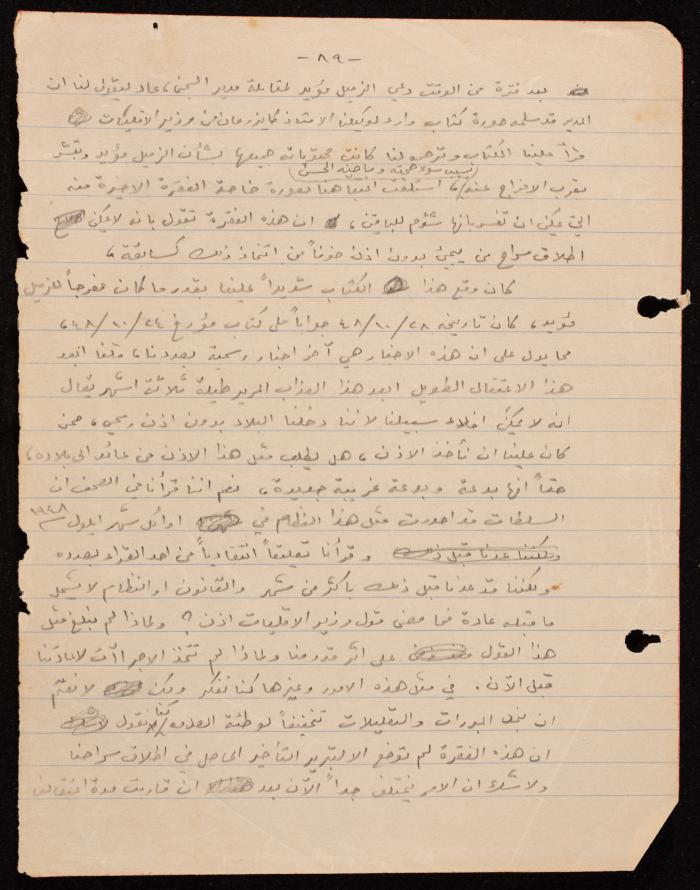 - ٨٩ -
بعد فترة من الوقت دعي الزميل مؤيد لمقابلة مدير السجن، عاد ليقول لنا ان
المدير قد سلمه صورة كتاب وارد لوكيلنا الاستاذ من وزير الاقليات
قرأ علينا الكتاب وترجمه لنا كانت محتوياته جميعها بشأن الزميل مؤيد وتبشر
بسبب سوء صحته وماضيه الحسن
بقرب الافراج عنه، استلفت انتباهنا بصورة خاصة الفقرة الاخيرة منه
التي يمكن ان تفسر بانها شؤم للباقين، ان هذه الفقرة تقول بانه لا يمكن
اطلاق سراح من يجيء بدون اذن خوفاً من اتخاذ ذلك كسابقة،
كان وقع هذا الكتاب شديداً علينا بقدر ما كان مفرحاً للزميل
مؤيد، كان تاريخه ٢٨/١٠/٤٨ جواباً على كتاب مؤرخ ٢٤/١٠/٤٨،
مما يدل على ان هذه الاخبار هي آخر اخبار رسمية بصددنا، قلنا ابعد
هذا الاعتقال الطويل ابعد هذا العذاب المرير طيلة ثلاثة اشهر يقال
انه لا يمكن اخلاء سبيلنا لاننا دخلنا البلاد بدون اذن رسمي، فمن
كان علينا ان نأخذ الاذن، هل يطلب مثل هذا الاذن من عائد الى بلاده،
حقاً انها بدعة وبدعة غريبة جديدة، نعم اننا قرأنا في الصحف ان
السلطات قد اصدرت مثل هذا النظام في اوائل شهر ايلول ١٩٤٨
ولكننا عدنا قبل ذلك وقرأنا تعليقاً انتقادياً من احد القراء بصدده
ولكننا قد عدنا قبل ذلك باكثر من شهر والقانون او النظام لا يشمل
ما قبله عادة فما معنى قول وزير الاقليات اذن؟ ولماذا لم نبلغ مثل
هذا القول على اثر قدومنا ولماذا لم تتخذ الاجراآت لاعادتنا
قبل الآن. في مثل هذه الامور وغيرها كنا نفكر ولكن لا نفتم
ان نجد المبررات والتعليلات تخفيفاً لوطئة الصدمة كنا نقول
ان هذه الفقرة لم توضع الا لتبرير التأخير الحاصل في اطلاق سراحنا
ولا شك ان الامر يختلف جداً الآن بعد ان قاربت مدة اعتقالنا